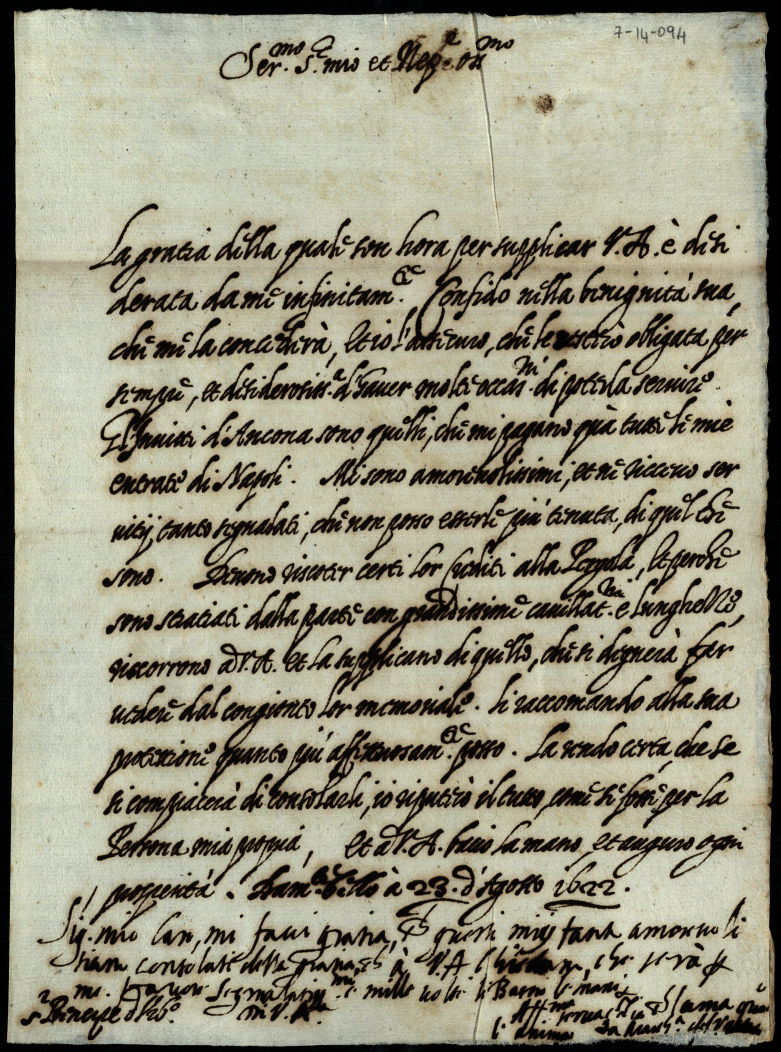 7-14-094
Ser.mo S.r mio et
La gratia della quale son hora per supplicar V. A. è desi
derata da me infinitam.te Confido nella benignità sua,
che me la concederà, et io l'assicuro, che le resterò obligata per
sempre, et desiderosiss.a d'haver molte occas.ni di poterla servire.
d'Ancona sono quelli, che mi pagano quà tutte le mie
entrate di Napoli. Mi sono amorevolissimi, et ne ricevo ser
vitij tanto segnalati, che non posso esserle più tenuta, di quel che
sono. Devono riscoter certi lor Crediti alla Pergola, et perche
sono stratiati dalla parte con grandissime cavillat.ni e lunghezze,
riccorrono a V. A. et la supplicano di quello, che si degnerà far
vedere dal congiunto lor memoriale. Li raccomando alla sua
protettione quanto più affettuosam.te posso. La rendo certa, che se
si compiacerà di consolarli, io riputerò il tutto, come se fosse per la
Persona mia propria, et a V. A. bacio la mano, et auguro ogni
prosperità. à 23. d'Agosto 1622.
Sig. mio Car, mi facci gratia, questi miei tanto amorevoli
siano consolati della gratia à V. A. che serà
favore e mille volte li
Principe d' V. A.
l'anima